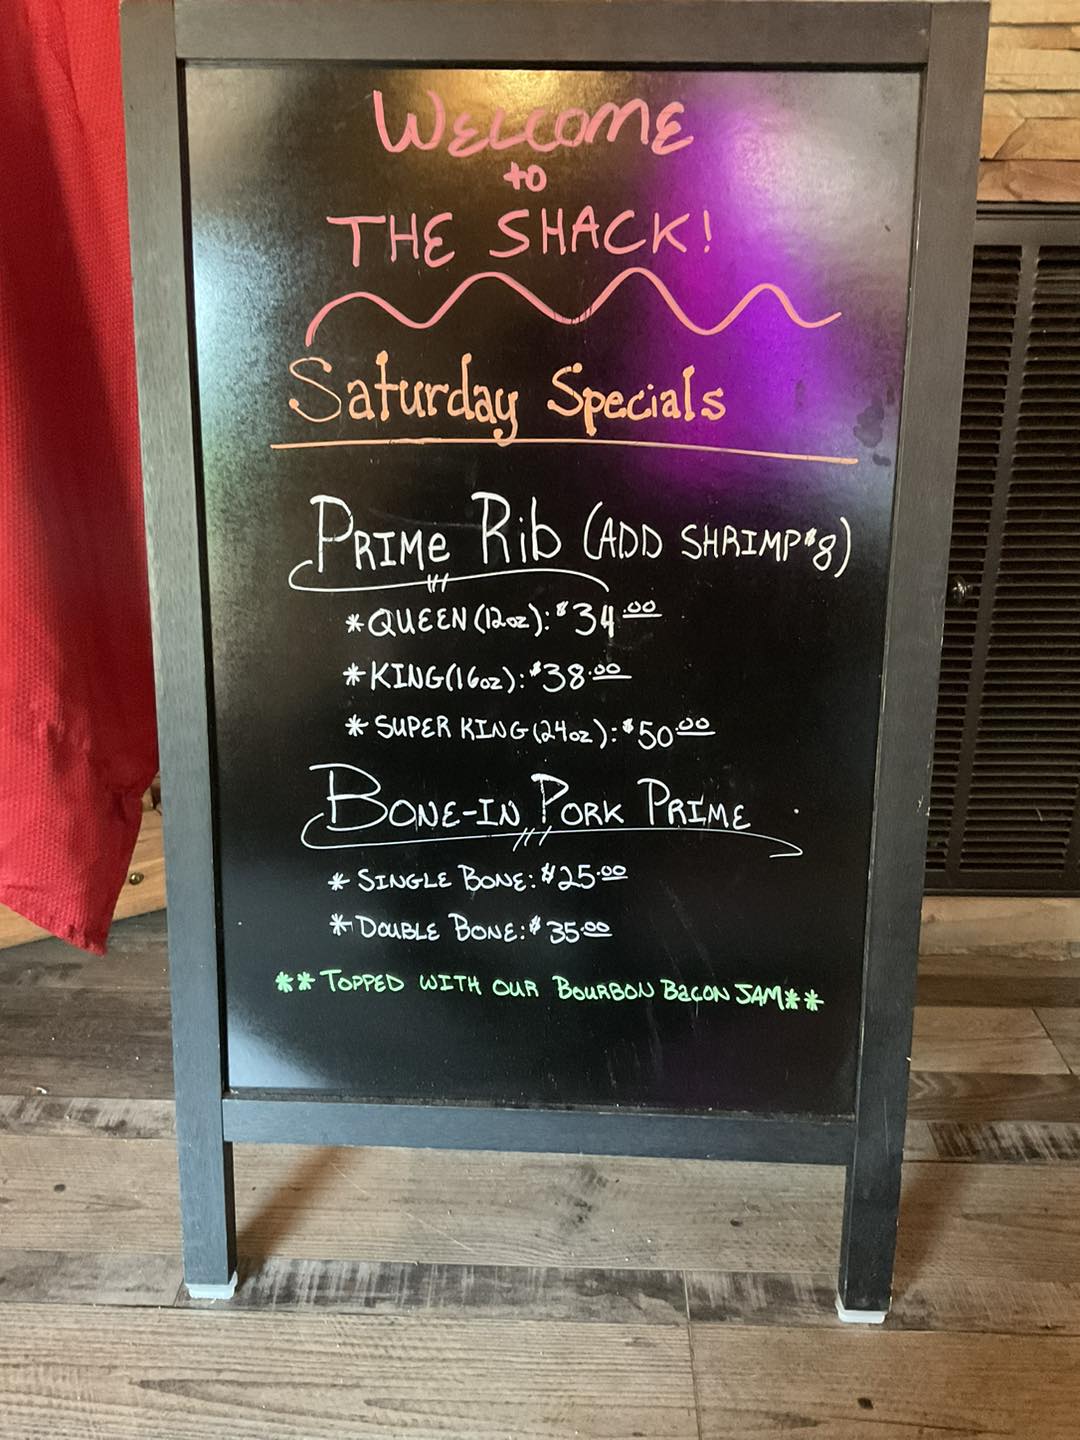 WELCOME
to
THE SHACK!
Saturday Specials
PRIME Rib (ADD SHRIMP $8)
* QUEEN (12oz): $34.00
* KING (16oz): $38.00
* SUPER KING (24oz): $50.00
BONE-IN PORK PRIME
* SINGLE BONE: $25.00
* DOUBLE BONE: $35.00
** TOPPED WITH OUR BOURBON BACON JAM **